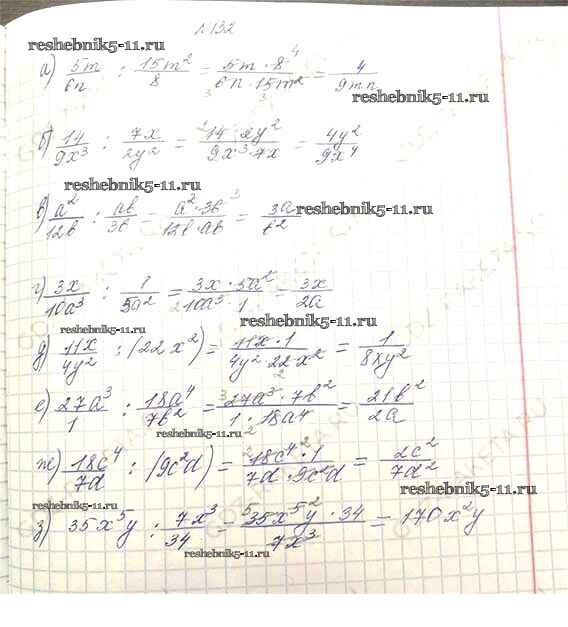 N 132
reshebnik5-11.ru
а) 5m/6n : 15m²/8 = 5m · 8/6n · 15m² = 4/9mn
reshebnik5-11.ru
б) 14/9x³ : 7x/2y² = 14 · 2y²/9x³ · 7x = 4y²/9x⁴
reshebnik5-11.ru
в) a²/12b : ab/3b = a² · 3b/12b · ab = 3a/b²
reshebnik5-11.ru
г) 3x/10a³ : 1/5a² = 3x · 5a²/10a³ · 1 = 3x/2a
reshebnik5-11.ru
д) 11x/4y² : (22x²) = 11x · 1/4y² · 22x² = 1/8xy²
е) 27a³/1 : 18a⁴/7b² = 27a³ · 7b²/1 · 18a⁴ = 21b²/2a
reshebnik5-11.ru
ж) 18c⁴/7d : (9c²d) = 18c⁴ · 1/7d · 9c²d = 2c²/7d²
reshebnik5-11.ru
з) 35x⁵y : 7x³/34 = 35x⁵y · 34/7x³ = 170x²y
reshebnik5-11.ru